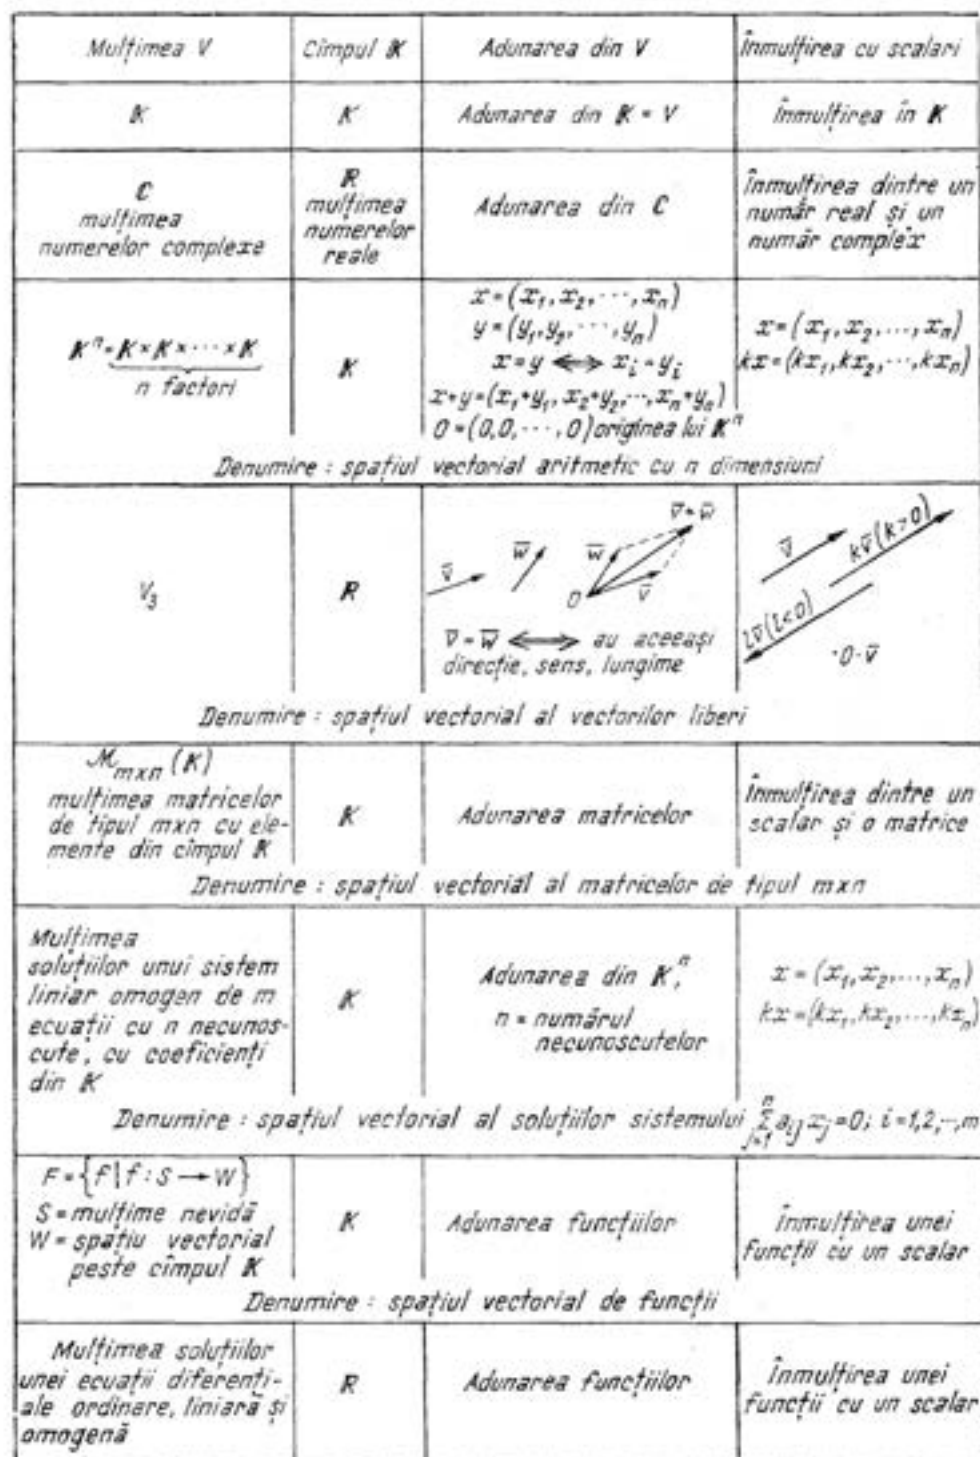 Mulțimea V
Cîmpul K
Adunarea din V
Înmulțirea cu scalari
K
K
Adunarea din K = V
Înmulțirea în K
C
mulțimea
numerelor complexe
R
mulțimea
numerelor
reale
Adunarea din C
Înmulțirea dintre un
număr real și un
număr complex
Kⁿ = K × K × ··· × K
n factori
K
x = (x₁, x₂, ···, xₙ)
y = (y₁, y₂, ···, yₙ)
x = y ⟺ xᵢ = yᵢ
x+y = (x₁+y₁, x₂+y₂, ···, xₙ+yₙ)
0 = (0,0, ···, 0) originea lui Kⁿ
x = (x₁, x₂, ..., xₙ)
kx = (kx₁, kx₂, ···, kxₙ)
Denumire : spațiul vectorial aritmetic cu n dimensiuni
V₃
R
v̅
w̅
w̅
v̅+w̅
O
v̅
v̅ = w̅ ⟺ au aceeași
direcție, sens, lungime
v̅
kv̅ (k>0)
lv̅ (l<0)
·0·v̅
Denumire : spațiul vectorial al vectorilor liberi
ℳₘₓₙ (K)
mulțimea matricelor
de tipul mxn cu ele-
mente din cîmpul K
K
Adunarea matricelor
Înmulțirea dintre un
scalar și o matrice
Denumire : spațiul vectorial al matricelor de tipul mxn
Mulțimea
soluțiilor unui sistem
liniar omogen de m
ecuații cu n necunos-
cute, cu coeficienți
din K
K
Adunarea din Kⁿ,
n = numărul
necunoscutelor
x = (x₁, x₂, ..., xₙ)
kx = (kx₁, kx₂, ..., kxₙ)
Denumire : spațiul vectorial al soluțiilor sistemului ∑ⁿⱼ₌₁ aᵢⱼ xⱼ = 0; i = 1,2,··,m
F = {f | f : S → W}
S = mulțime nevidă
W = spațiu vectorial
peste cîmpul K
K
Adunarea funcțiilor
Înmulțirea unei
funcții cu un scalar
Denumire : spațiul vectorial de funcții
Mulțimea soluțiilor
unei ecuații diferenți-
ale ordinare, liniară și
omogenă
R
Adunarea funcțiilor
Înmulțirea unei
funcții cu un scalar